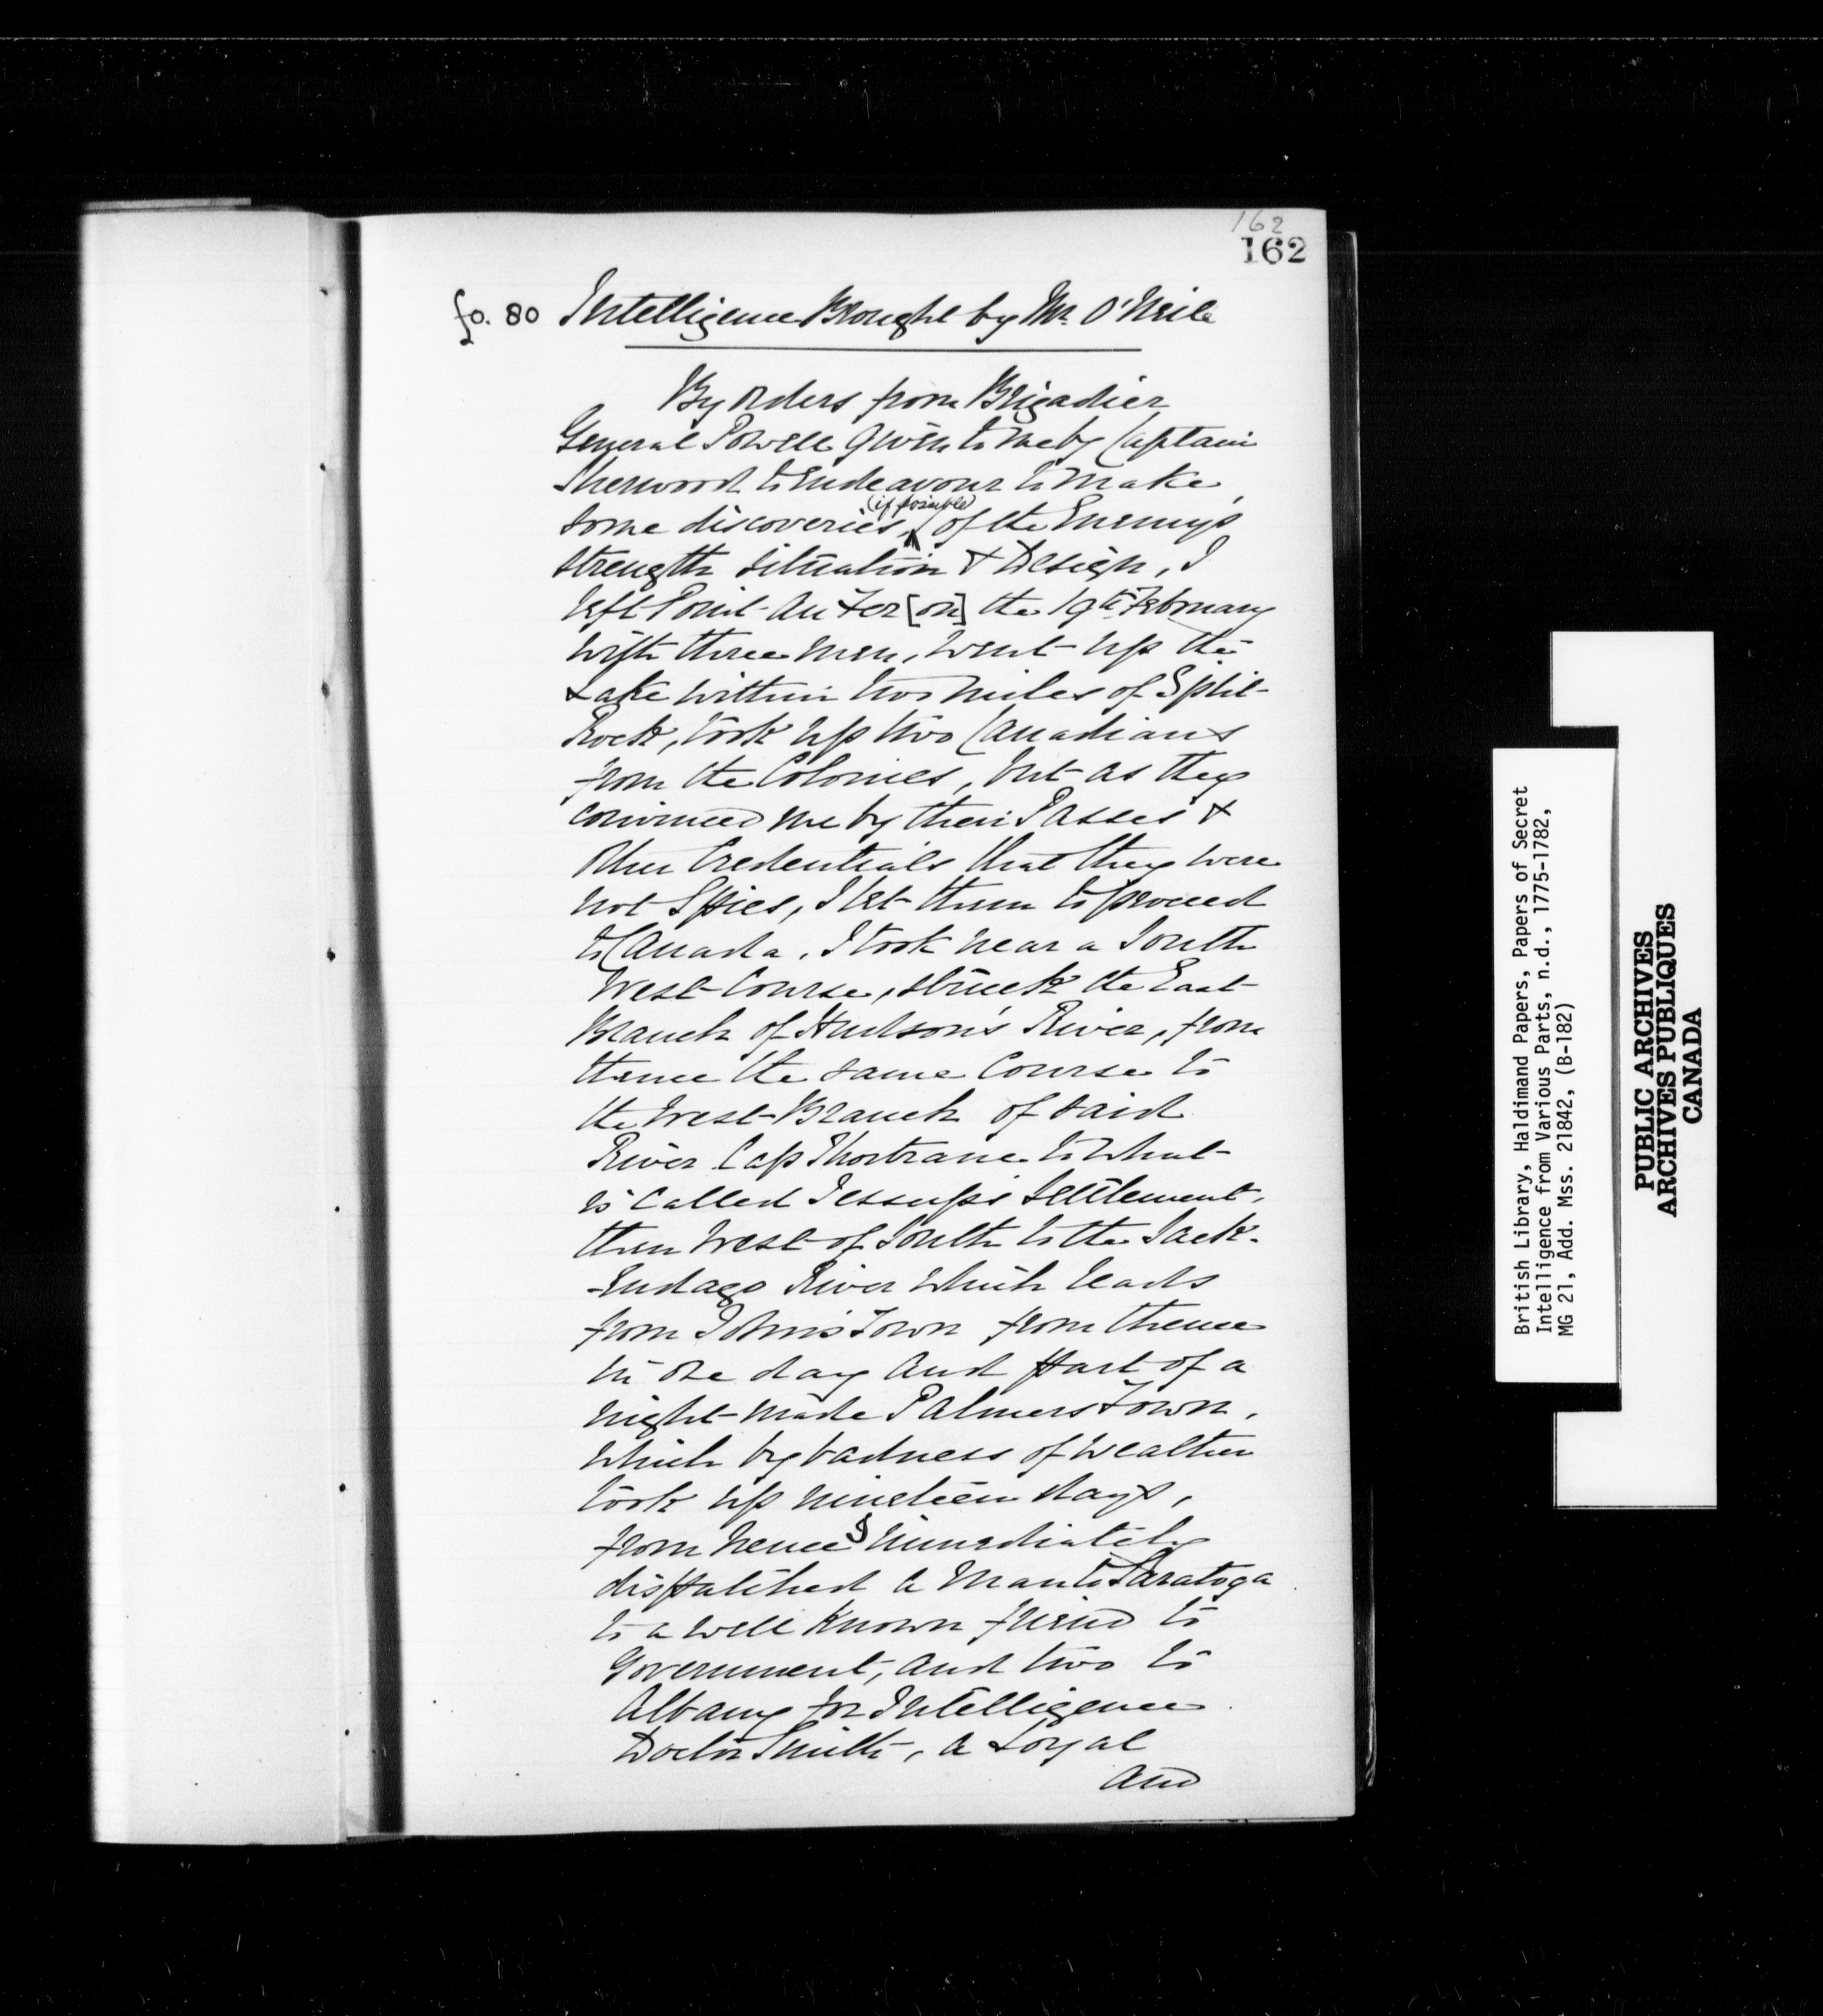 162
162
fo. 80 Intelligence Brought by Mr. O'Neile
By orders from Brigadier
General Powell given to me by Captain
Sherwood to Endeavour to make
(if possible)
some discoveries, of the Enemys
strength situation & Design, I
left Point-Au Fer [on] the 19th February
with three men, went up the
Lake within two miles of Split-
Rock, took up two Canadians
from the Colonies, but as they
convinced me by their Passes &
other Credentials that they were
not Spies, I let them to proceed
to Canada, I took near a South
West Course, struck the East
Branch of Hudson's River, from
thence the same Course to
the West-Branch of said
River to what
is called Jessups Settlement,
then West of South to the Sack-
-endago River which leads
from Johns Town from thence
in one day and part of a
night made Palmers Town,
which by badness of weather
took up nineteen days,
from hence I immediately
dispatched a man to Saratoga
to a well known friend to
Government, and two to
Albany for Intelligence
Doctor Smith, a Loyal
and
British Library, Haldimand Papers, Papers of Secret
Intelligence from Various Parts, n.d., 1775-1782,
MG 21, Add. Mss. 21842, (B-182)
PUBLIC ARCHIVES
ARCHIVES PUBLIQUES
CANADA